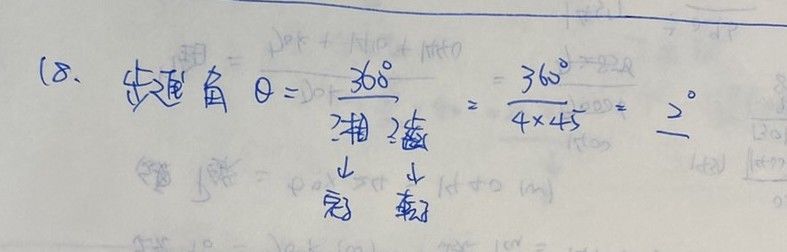 18. 步進角 θ = 360° / 2相 2齒 = 360° / 4×45 = 2°
↓ ↓
定子 轉子